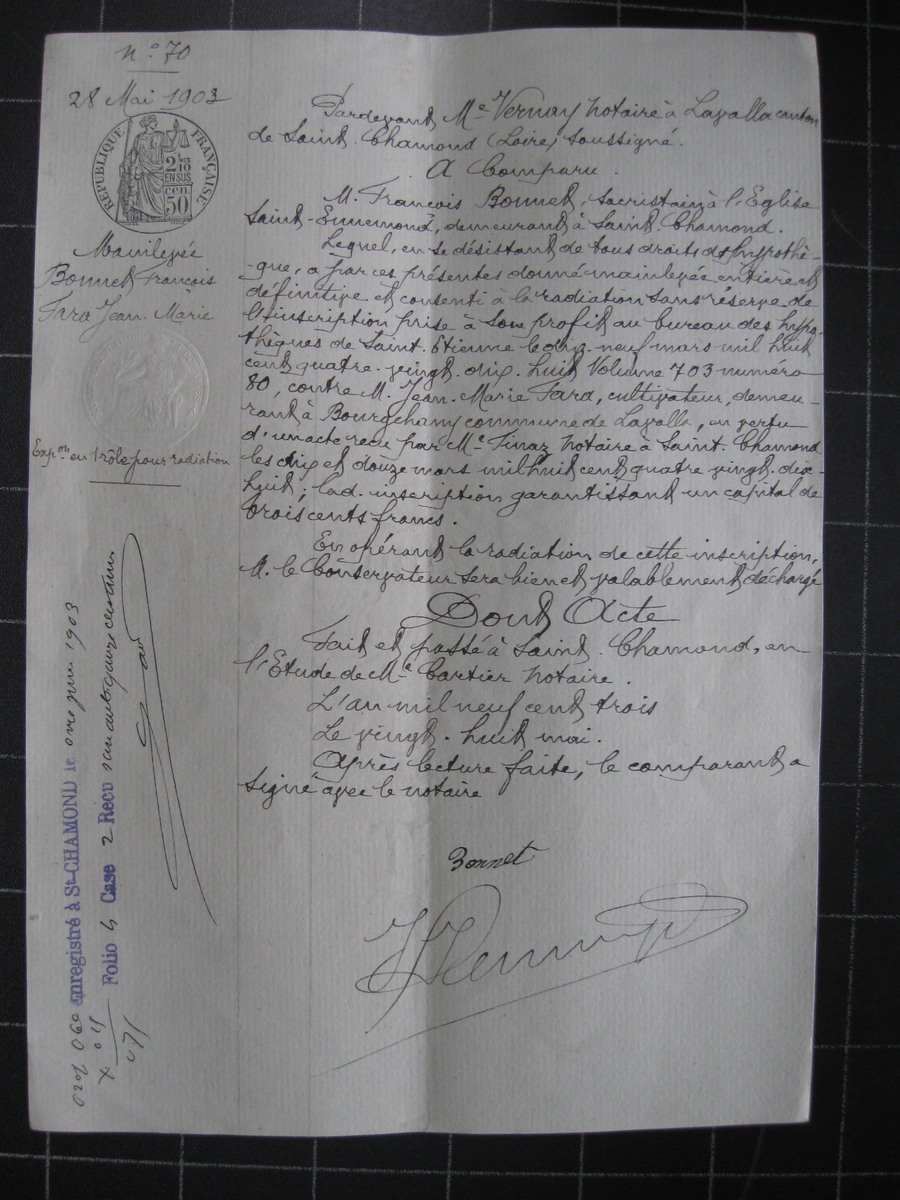 N° 70
28 Mai 1903
RÉPUBLIQUE FRANÇAISE
2/10
EN SUS
50
cen
Mainlevée
Bonnet François
Fara Jean-Marie
Expon en 1 rôle pour radiation
Pardevant Me Vernay notaire à Lavalla canton
de Saint-Chamond (Loire) soussigné.
A Comparu.
M. François Bonnet, sacristain à l'Eglise
Saint-Ennemond, demeurant à Saint-Chamond.
Lequel, en se désistant de tous droits d'hypothè-
-que, a par ces présentes donné mainlevée entière et
définitive et consenti à la radiation sans réserve de
l'inscription prise à son profit au bureau des hypo-
thèques de Saint-Etienne le dix-neuf mars mil huit
cent quatre-vingt-dix-huit Volume 703 numéro
80, contre M. Jean-Marie Fara, cultivateur, demeu-
rant à Bourgchany commune de Lavalla, en vertu
d'un acte reçu par Me Finaz notaire à Saint-Chamond
les dix et douze mars mil huit cent quatre-vingt-dix-
huit; lad. inscription garantissant un capital de
trois cents francs.
En opérant la radiation de cette inscription,
M. le Conservateur sera bien et valablement déchargé
Dont Acte
Fait et passé à Saint-Chamond, en
l'Etude de Me Cartier notaire.
L'an mil neuf cent trois
Le vingt-huit mai.
Après lecture faite, le comparant a
signé avec le notaire
Bonnet
Vernay
Enregistré à St-CHAMOND le onze juin 1903
Folio 4 Case 2 Reçu